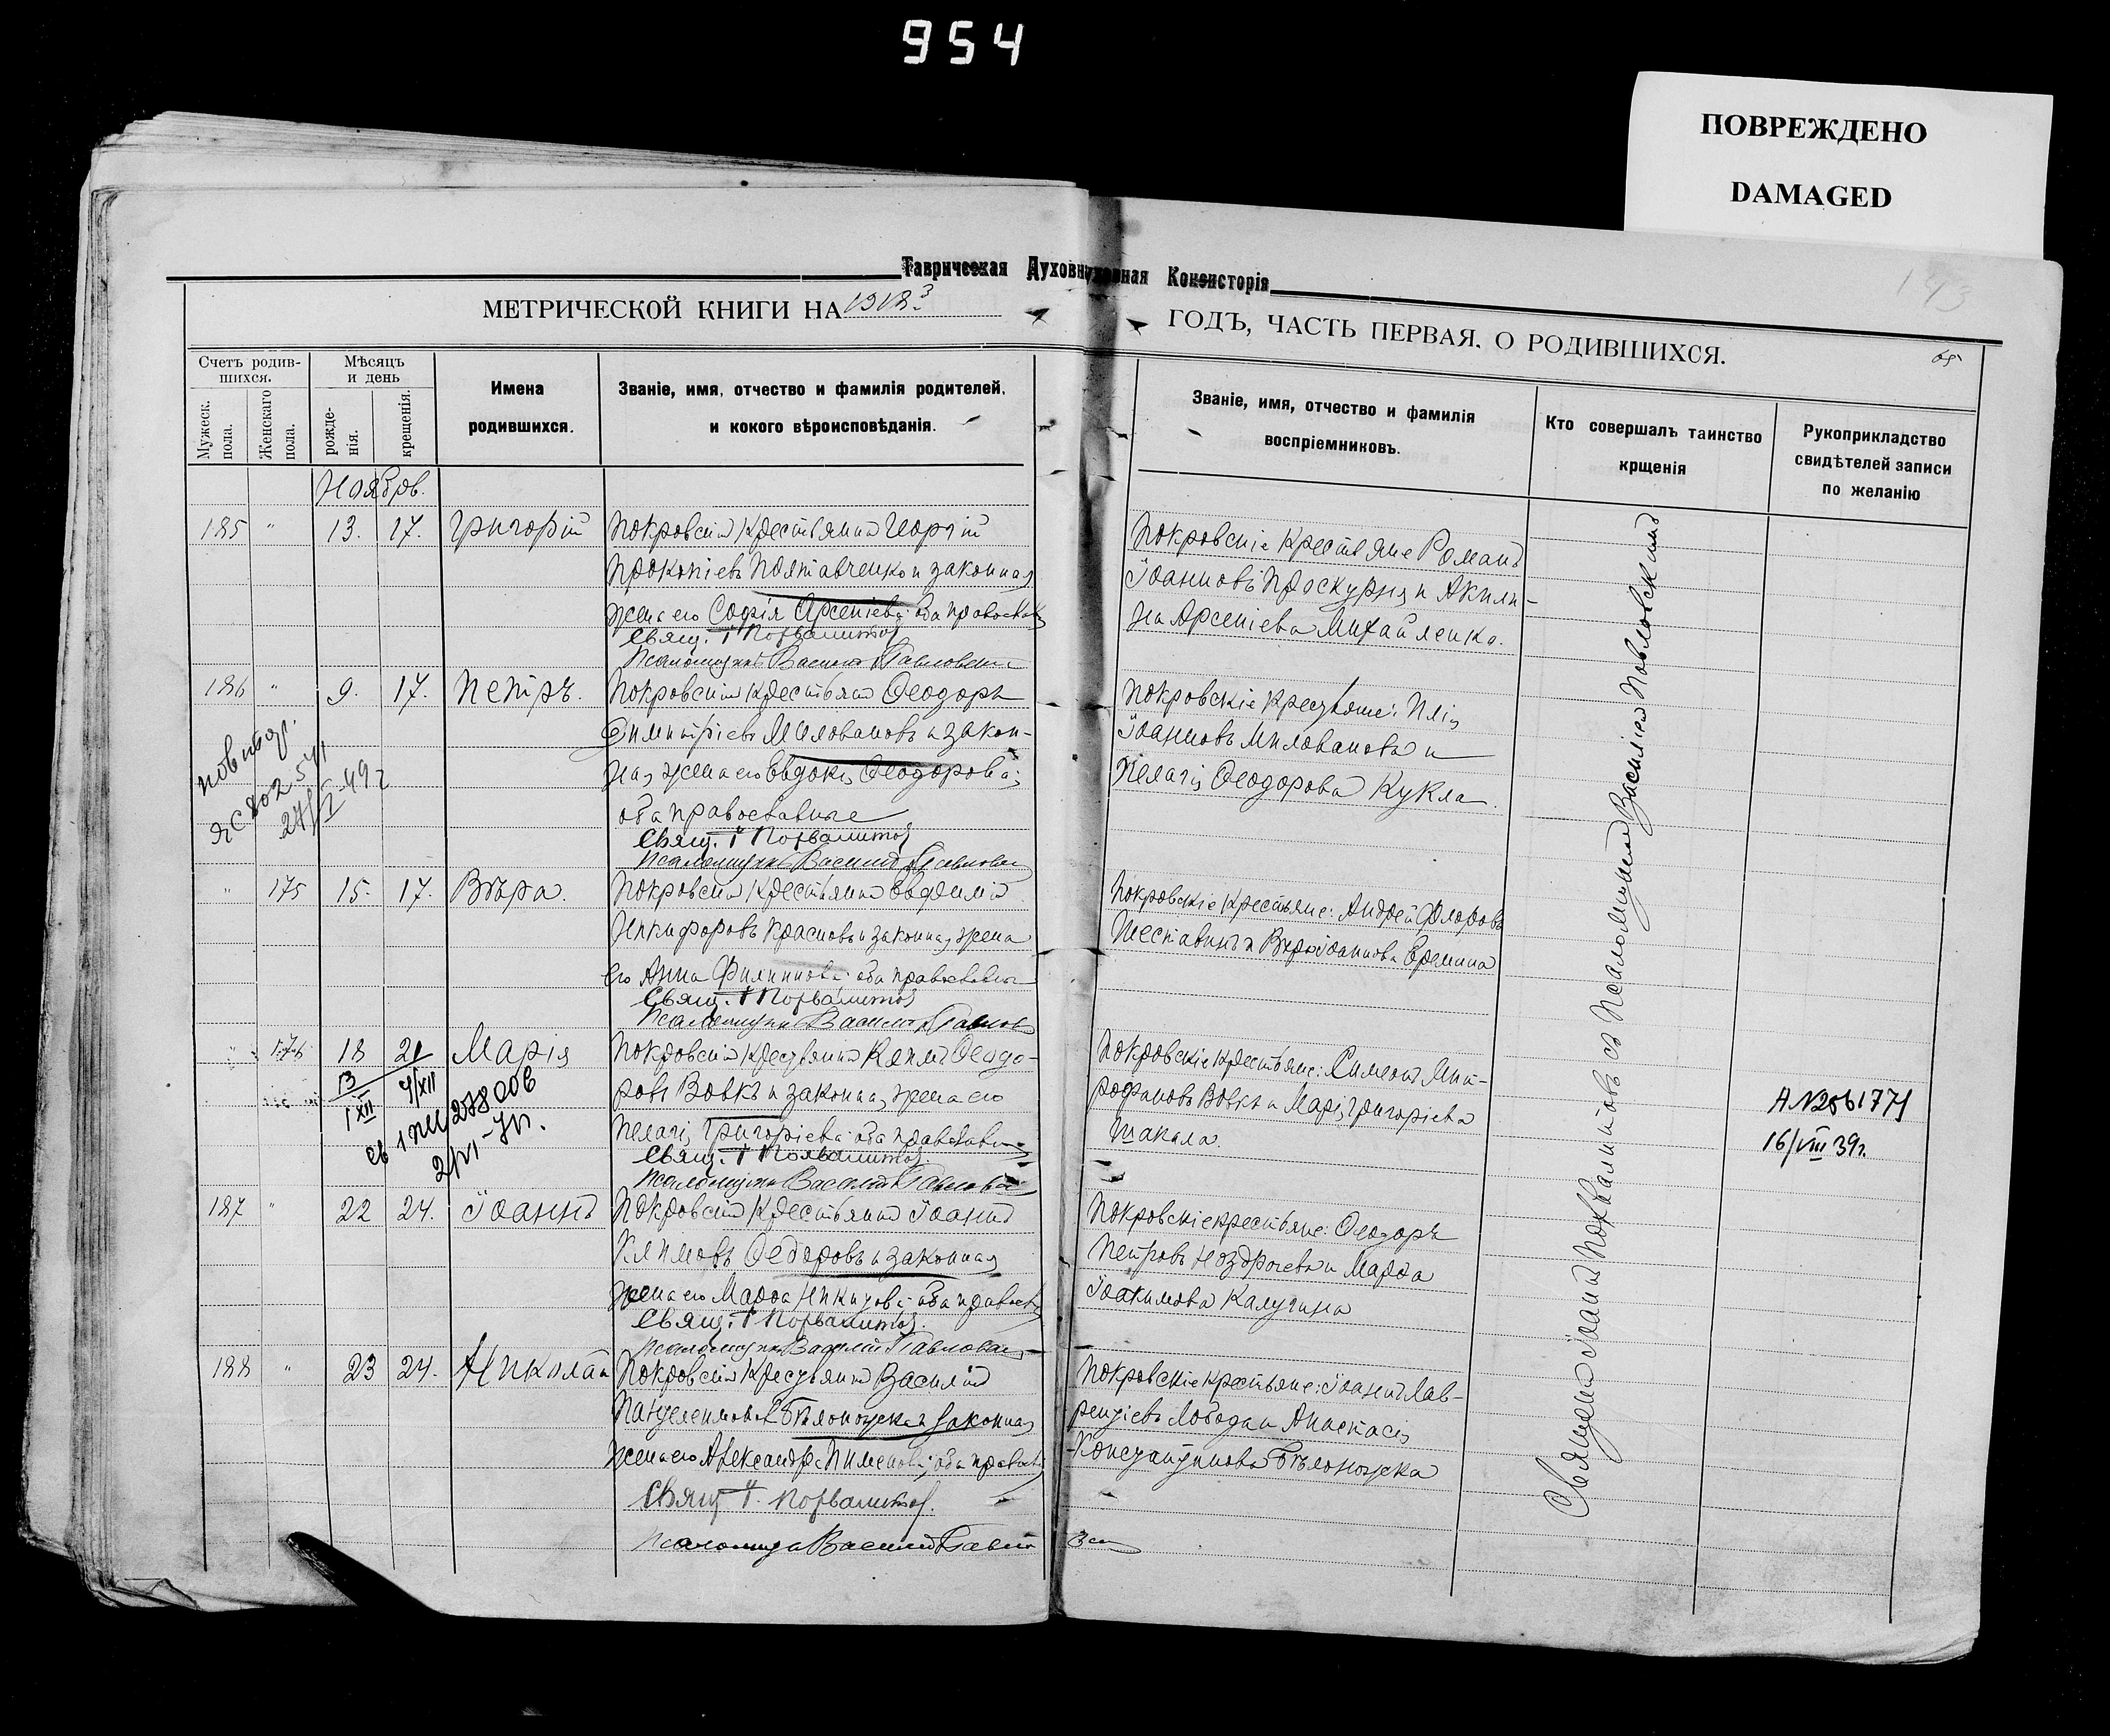 954
ПОВРЕЖДЕНО
DAMAGED
Таврическая Духовная Консисторія
МЕТРИЧЕСКОЙ КНИГИ НА
ГОДЪ, ЧАСТЬ ПЕРВАЯ. О РОДИВШИХСЯ.
Счетъ родив-
шихся.
Мужеск. пола.
Женскаго пола.
Мѣсяцъ
и день
рожде-
нія.
крещенія.
Имена
родившихся.
Званіе, имя, отчество и фамилія родителей,
и кокого вѣроисповѣданія.
Званіе, имя, отчество и фамилія
воспріемниковъ.
Кто совершалъ таинство
крщенія
Рукоприкладство
свидѣтелей записи
по желанію
Ноябрь.
185 " 13. 17. Григорій Покровскій крестьянинъ Георгій
Прокопіевъ Полтавченко и законная
жена его Софія Арсеніева: оба православ
Свящ. І Похвалитов
Псаломщикъ Василій Павловскі
Покровскіе крестьяне Романъ
Іоанновъ Проскурня и Акили-
на Арсеніева Михайленко.
186 " 9. 17. Петръ. Покровскій крестьянинъ Ѳеодоръ
Димитріевъ Миловановъ и закон-
ная жена его Евдокія Ѳеодорова;
оба православные
Свящ. І Похвалитов
Псаломщикъ Василій Павловск
Покровскіе крестьяне: Илія
Іоанновъ Миловановъ и
Пелагія Ѳеодорова Кукла.
" 175 15. 17. Вѣра. Покровскій крестьянинъ Евфимій
Никифоровъ Красновъ и законная жена
его Анна Филиппова: оба православные
Свящ. І Похвалитов
Псаломщикъ Василій Павлов
Покровскіе крестьяне: Андрей Флоровъ
Шеставинъ и Вѣра Іоаннова Еремина
" 176 18 21 Марія Покровскій крестьянинъ Климъ Ѳеодо-
ровъ Вовкъ и законная жена его
Пелагія Григоріева: оба православн
Свящ. І Похвалитов.
Псаломщикъ Василій Павловск
13
1 XII
4/XII
Покровскіе крестьяне: Симеонъ Мит-
рофановъ Вовкъ и Марія Григоріева
Шакала.
16/VIII 39г.
187 " 22 24. Іоаннъ Покровскій крестьянинъ Іоаннъ
Климовъ Ѳедоровъ и законная
жена его Марѳа Никитова: оба правосл
Свящ. І Похвалитов.
Псаломщикъ Василій Павловск
Покровскіе крестьяне: Ѳеодоръ
Петровъ Ноздрачевъ и Марѳа
Іоакимова Калугина
188 " 23 24. Николай Покровскій крестьянинъ Василій
Пантелеимоновъ Бѣлоножка и законная
жена его Александра Пименова; оба правосл
Свящ. І. Похвалитов.
Псаломщ Василій Павло вск
Покровскіе крестьяне: Іоаннъ Лав-
рентіевъ Лобода и Анастасія
Константинова Бѣлоножка
Священникъ Іоаннъ Похвалитовъ съ Псаломщикомъ Василіемъ Павловскимъ